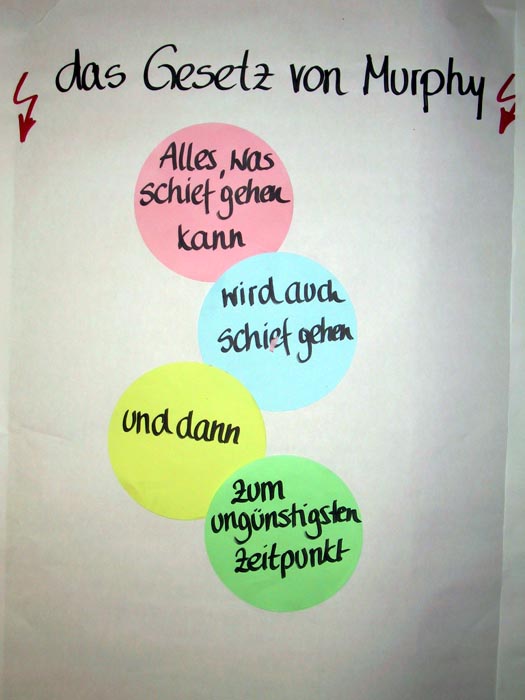 das Gesetz von Murphy
Alles, was
schief gehen
kann
wird auch
schief gehen
und dann
zum
ungünstigsten
Zeitpunkt